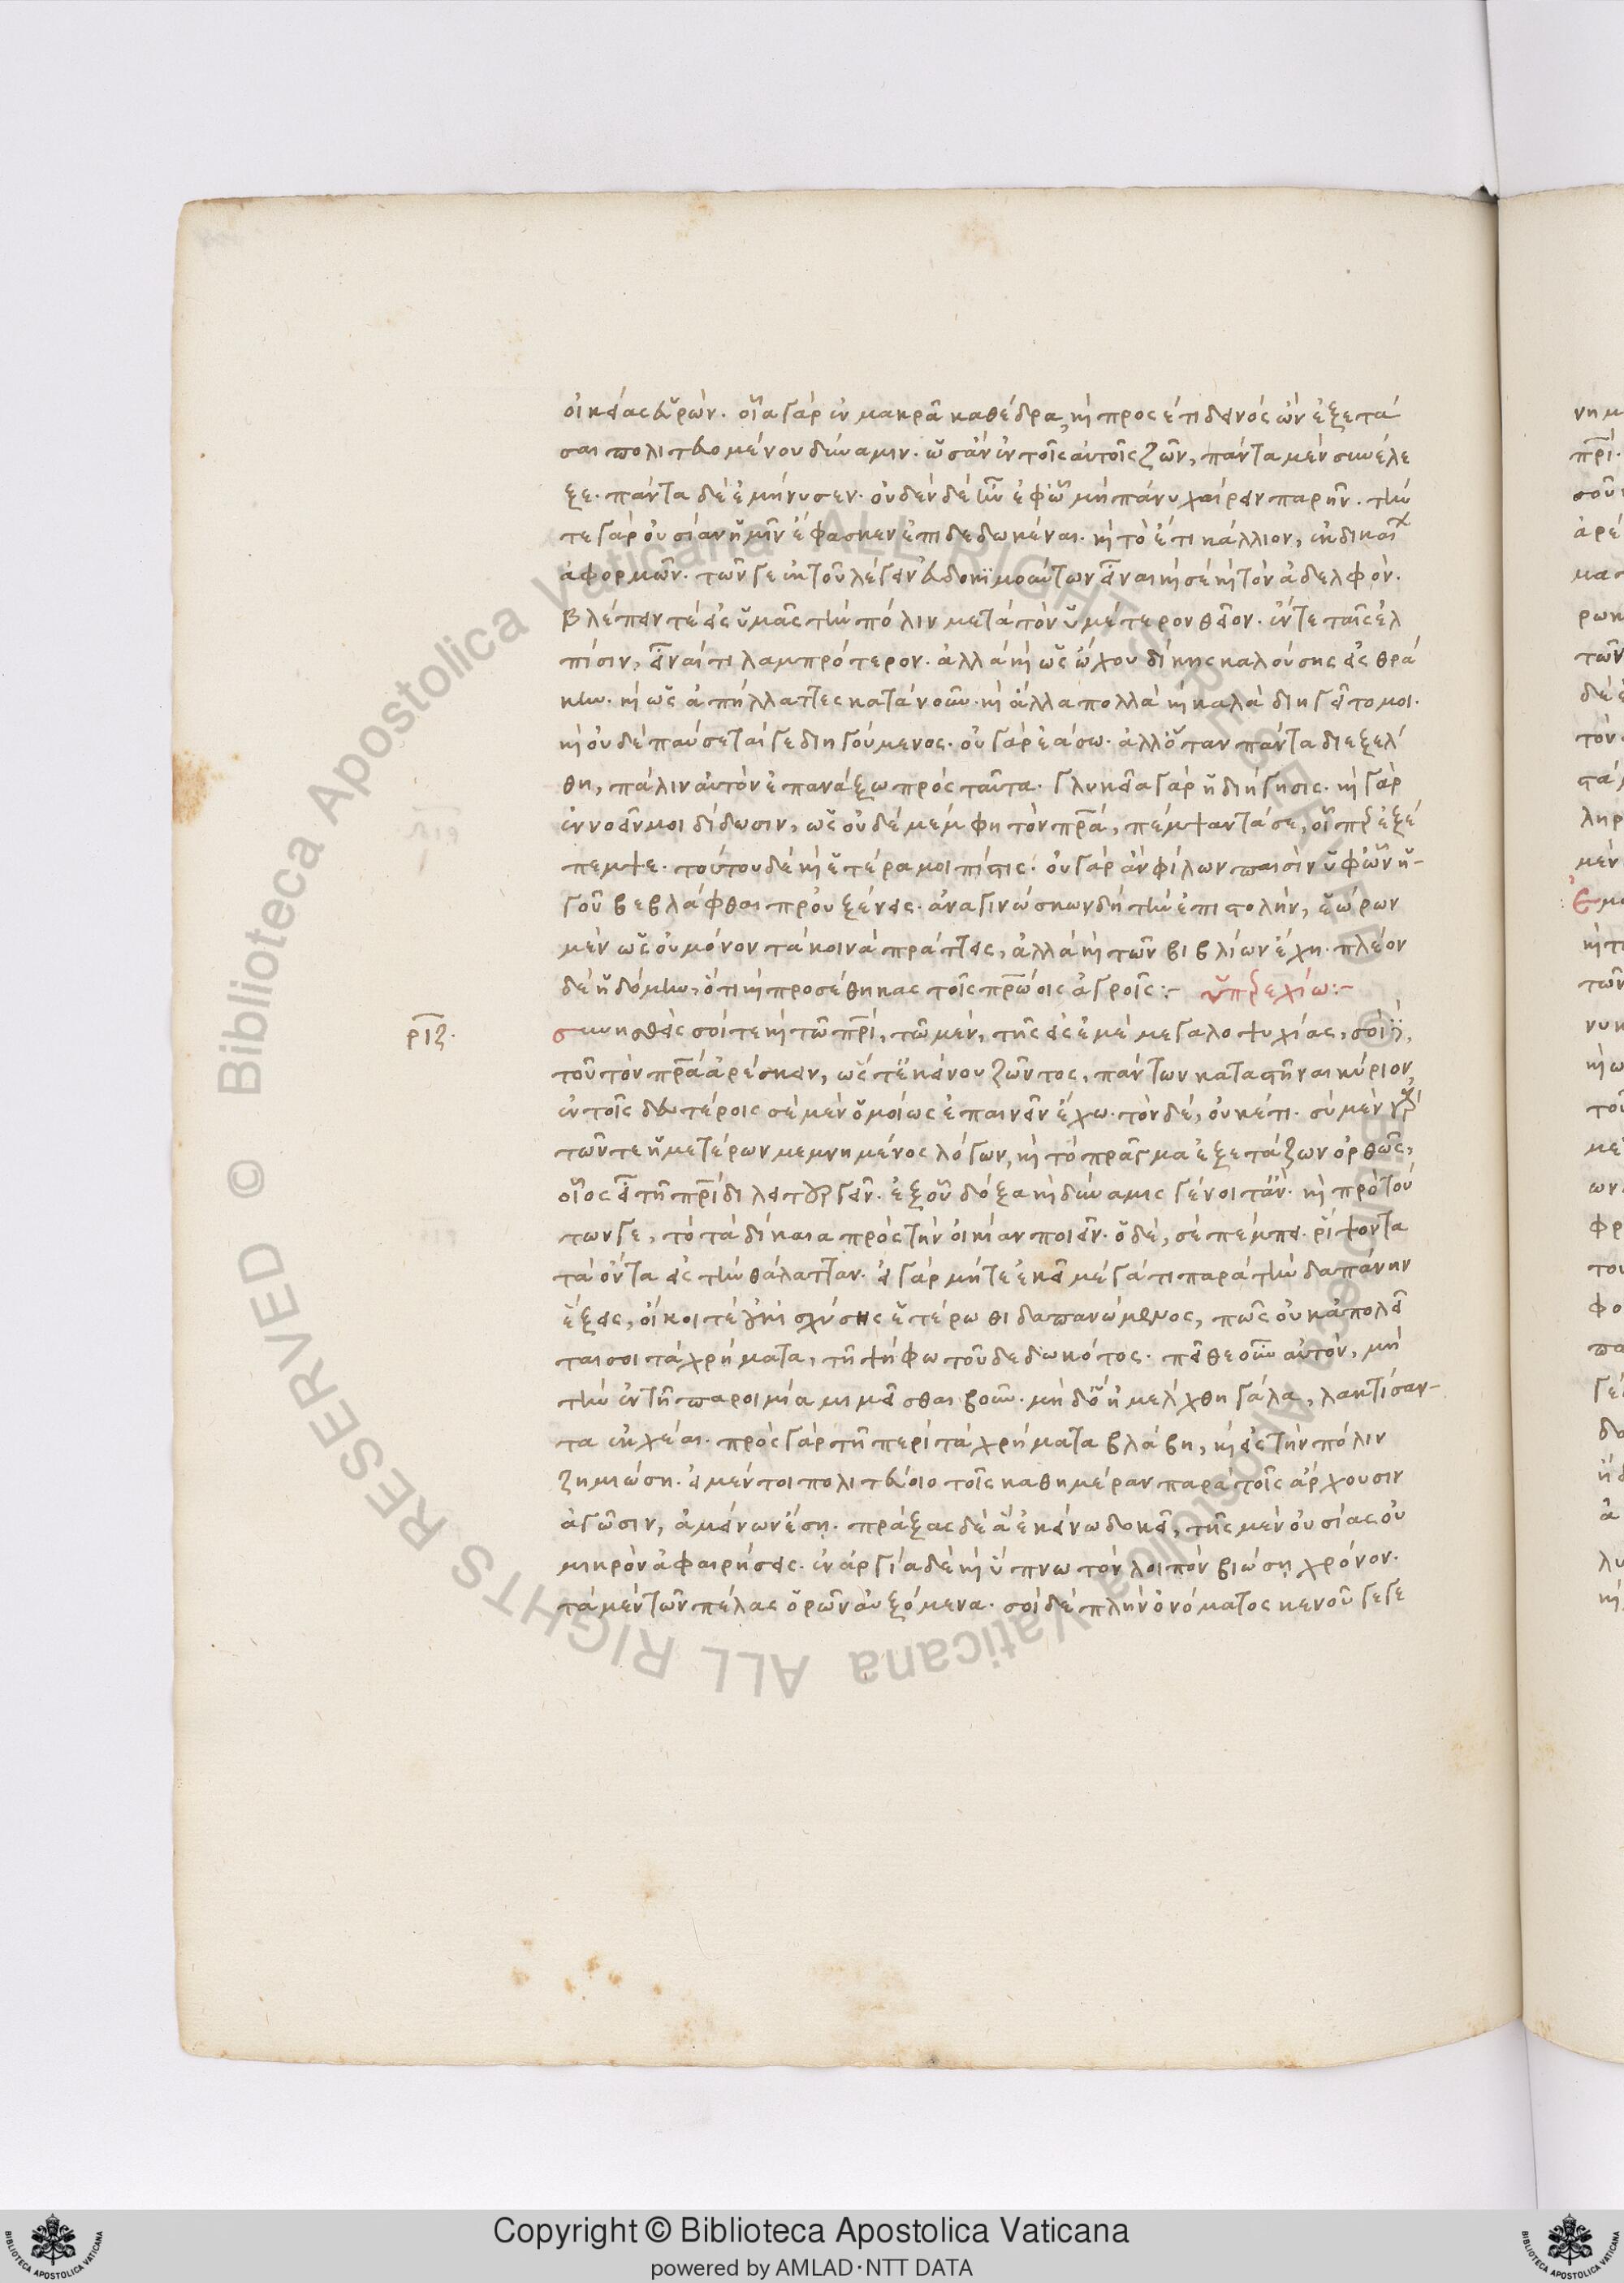 οἰκείας εὑρών. οἷα γὰρ ἐν μακρᾷ καθέδρᾳ, καὶ προσέτι δεινὸς ὢν ἐξετά
σαι πολιτευομένου δύναμιν. ὡσὰν ἐν τοῖς αὐτοῖς ζῶν, πάντα μὲν συνέλε
ξε. πάντα δὲ ἐμήνυσεν. οὐδὲν δὲ ἦν ἐφ' ᾧ μὴ πάνυ χαίρειν παρῆν. τήν
τε γὰρ οὐσίαν ἡμῖν ἔφασκεν ἐπιδεδωκέναι. καὶ τὸ ἔτι κάλλιον, ἐκ δικαίων
ἀφορμῶν. τῶν γε ἐκ τοῦ λέγειν εὐδοκιμούντων εἶναι καὶ σὲ καὶ τὸν ἀδελφόν.
βλέπειν τὲ εἰς ὑμᾶς τὴν πόλιν μετὰ τὸν ὑμέτερον θεῖον. ἔν τε ταῖς ἐλ
πίσιν, εἶναί τι λαμπρότερον. ἀλλὰ καὶ ὡς ᾤχου δίκης καλούσης εἰς θρᾴ
κην. καὶ ὡς ἀπήλλαττες κατὰ νοῦν. καὶ ἄλλα πολλὰ καὶ καλὰ διηγεῖτό μοι.
καὶ οὐδὲ παύσεταί γε διηγούμενος. οὐ γὰρ ἐάσω. ἀλλ' ὅταν πάντα διεξέλ
θῃ, πάλιν αὐτὸν ἐπανάξω πρὸς ταῦτα. γλυκεῖα γὰρ ἡ διήγησις. καὶ γὰρ
ἐννοεῖν μοι δίδωσιν, ὡς οὐδὲ μέμφῃ τὸν πρᾶ, πέμψαντά σε, οἷπερ ἐξέ
πεμψε. τούτου δὲ καὶ ἑτέρα μοι πίστις. οὐ γὰρ ἂν φίλων παισὶν ὑφ' ὧν ἡ-
γοῦ βεβλάφθαι προὐξένεις. ἀναγινώσκων δὴ τὴν ἐπιστολὴν, ἑώρων
μὲν ὡς οὐ μόνον τὰ κοινὰ πράττεις, ἀλλὰ καὶ τῶν βιβλίων ἔχῃ. πλέον
δὲ ἡδόμην, ὅτι καὶ προσέθηκας τοῖς πρώοις ἀγροῖς:- ὑπερεχίω:-
ριζ.
συνησθεὶς σοί τε καὶ τῶ πρὶ, τῶ μὲν, τῆς εἰς ἐμὲ μεγαλοψυχίας, σοὶ δὲ,
τοῦ τὸν πρᾶ ἀρέσκειν, ὥστε κἀκείνου ζῶντος, πάντων καταστῆναι κύριον,
ἐν τοῖς δευτέροις σὲ μὲν ὁμοίως ἐπαινεῖν ἔχω. τὸν δὲ, οὐκέτι. σὺ μὲν γὰρ
τῶν τε ἡμετέρων μεμνημένος λόγων, καὶ τὸ πρᾶγμα ἐξετάζων ὀρθῶς,
οἷος εἶ τῇ πρίδι λειτουργεῖν. ἐξ οὗ δόξα καὶ δύναμις γένοιτ' ἄν. καὶ πρὸ τού
των γε, τὸ τὰ δίκαια πρὸς τὴν οἰκίαν ποιεῖν. ὁ δὲ, σὲ πέμπει. ῥίψοντα
τὰ ὄντα εἰς τὴν θάλατταν. εἰ γὰρ μήτε ἐκεῖ μέγά τι παρὰ τὴν δαπάνην
ἕξεις, οἴκοι τὲ οὐκ ἰσχύσεις ἑτέρωθι δαπανώμενος, πῶς οὐκ ἀπολεῖ
ταί σοι τὰ χρήματα, τῇ ψήφω τοῦ δεδωκότος. πεῖθε οὖν αὐτὸν, μὴ
τὴν ἐν τῇ παροιμία μιμεῖσθαι βοῦν. μὴ δ' ὃ ἠμέλχθη γάλα, λακτίσαν-
τα ἐκχέαι. πρὸς γὰρ τῇ περὶ τὰ χρήματα βλάβη, καὶ εἰς τὴν πόλιν
ζημιώσῃ. εἰ μέν τοι πολιτεύοιο τοῖς καθημέραν παρὰ τοῖς ἄρχουσιν
ἀγῶσιν, ἀμείνων ἔσῃ. πράξας δὲ ἃ ἐκείνω δοκεῖ, τῆς μὲν οὐσίας οὐ
μικρὸν ἀφαιρήσεις. ἐν ἀργία δὲ καὶ ὕπνω τὸν λοιπὸν βιώσῃ χρόνον.
τὰ μὲν τῶν πέλας ὁρῶν αὐξόμενα. σοὶ δὲ πλὴν ὀνόματος κενοῦ γεγε